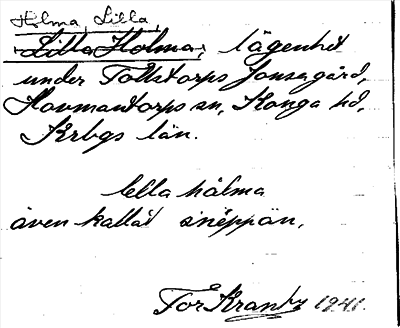 Holma, Lilla,
Lilla Holma, lägenhet
under Tollstorps Jonsagård,
Hovmantorps sn, Konga hd,
Krbgs län.
lella hålma
även kallat snéppan,
Tor Krantz 1941.